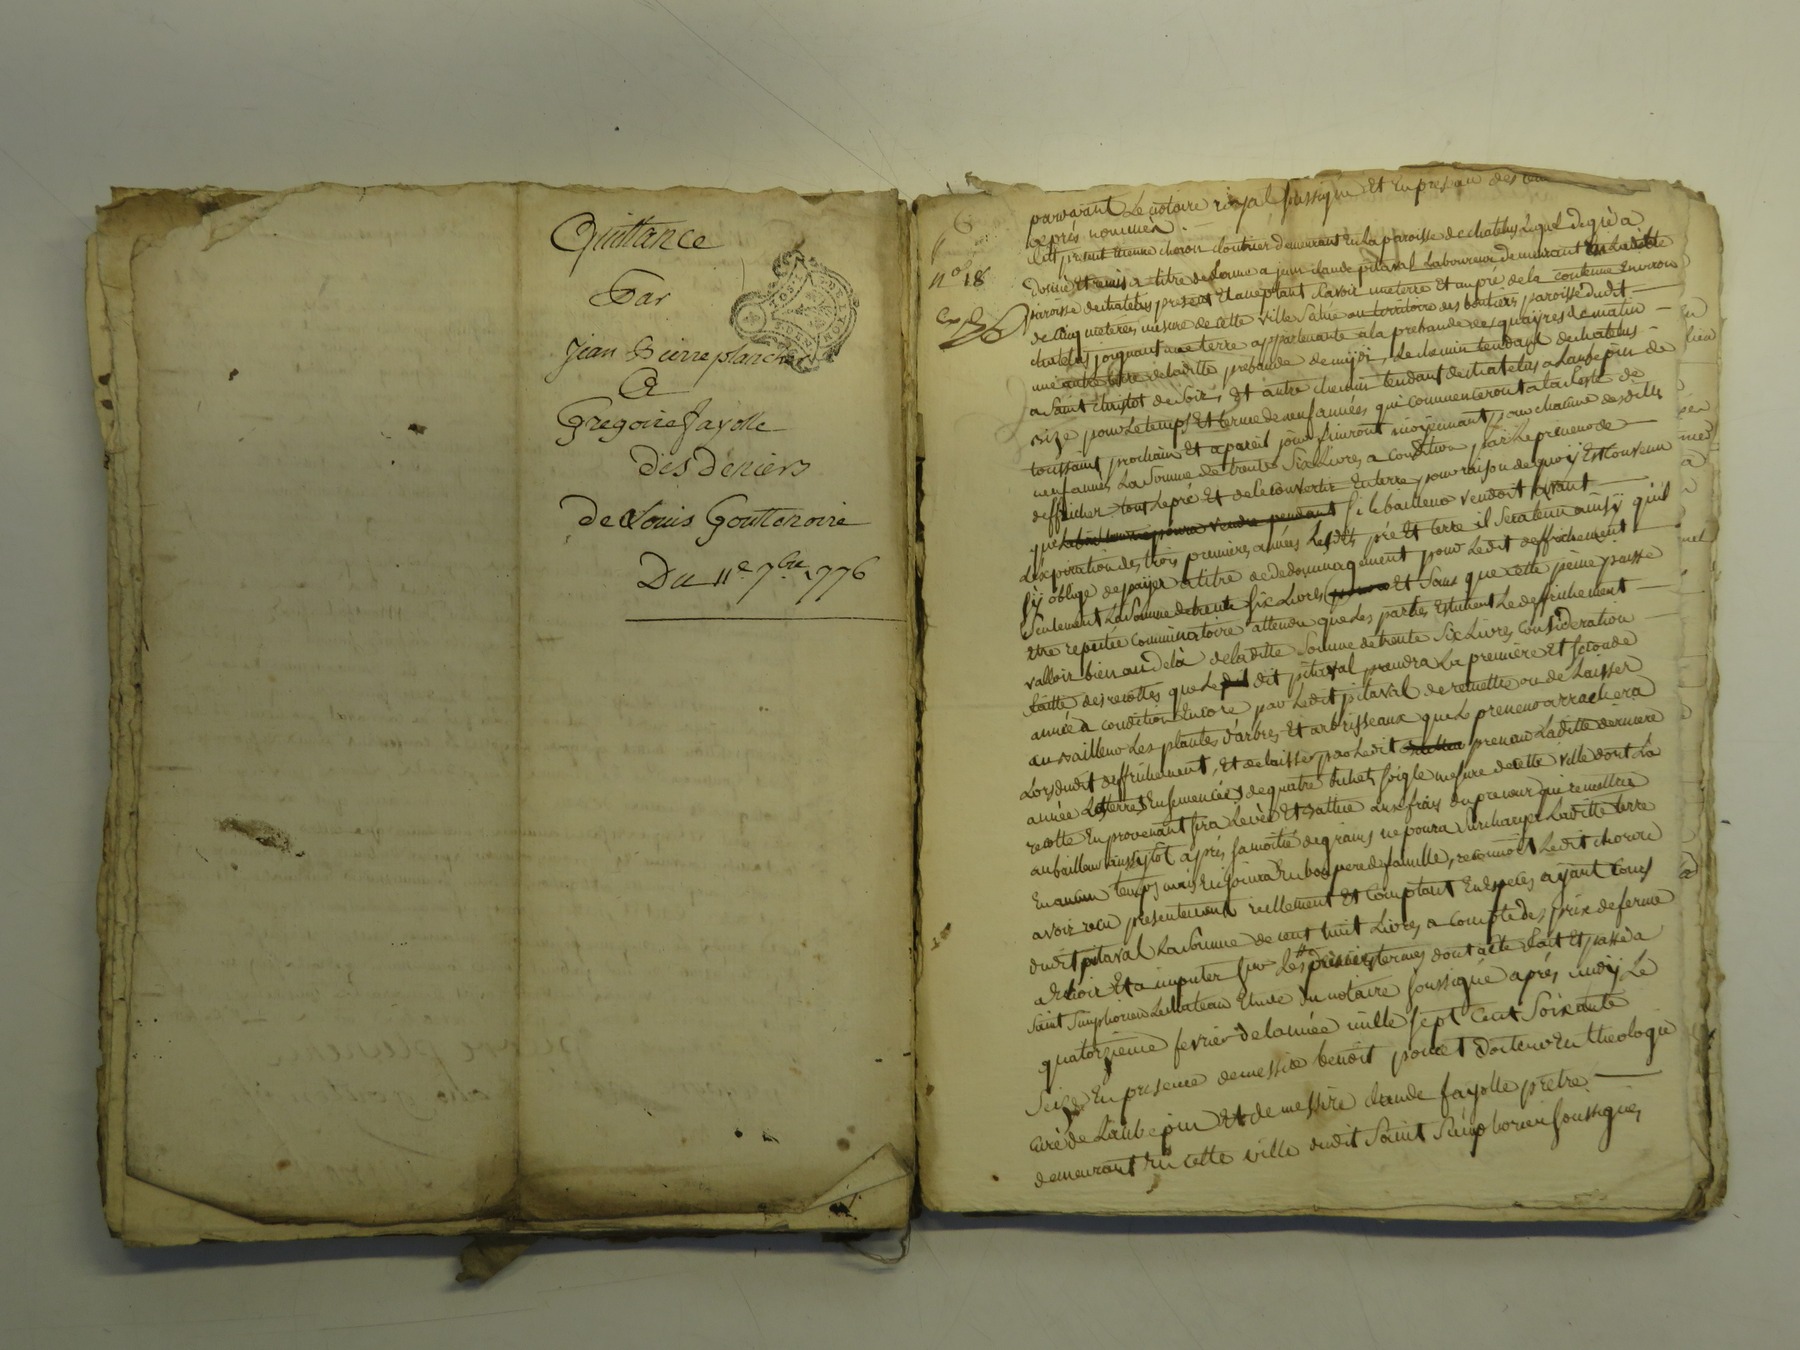 Quittance
Par
Jean Pierre plancher
Et
Gregoire fayolle
des deniers
de Louis Gouttenoire
Du 11e 7bre 1776
n° 18
pardevant Le notaire royal soussigné Et En presence des
apres nommés
Est present Etienne choron cloutrier demeurant En La paroisse de chatelus Lequel de gré a
donné Et remis a titre de ferme a jean claude pitaval Laboureur demeurant En Laditte
paroisse de chatelus present Et acceptant Savoir une terre Et un pré de la contenue Environ
de cinq meterées mesure de cette ville Scitué au territoire des paroisse dudit
chatelus joignant une terre appartenante a la prebande des de matin
une autre terre de laditte prebande de midi, Le chemin tendant de chatelus
a Saint christot de soir, Et autre chemin tendant de chatelus a Laubepin de
bize pour Le temps Et terme de neuf années qui commenceront a la feste de
toussaint prochain Et a pareil jour finiront moyennant pour chacune desdittes
neuf années La Somme de trente Six Livres a condition par Le preneur de
deffricher tout Le pré Et de le convertir En terre, pour raison de quoy Est convenu
que si le bailleur vendoit avant
L'expiration des trois premieres années Lesdits pré Et terre il Sera tenu ainsy qu'il
s'y oblige de payer a titre de dedommagement pour Ledit deffrichement
Seulement La Somme de trente Six Livres Et Sans que cette peine puisse
Etre reputée comminatoire attendu que Les parties Estiment Le deffrichement
valloir bien au dela de laditte Somme de trente Six Livres consideration
faitte des recoltes que Le dit pitaval prendra La premiere Et Seconde
année a condition Encore par Ledit pitaval de remettre ou de Laisser
au bailleur Les plantes d'arbres Et arbrisseaux que Le preneur arrachera
Lors dudit deffrichement, Et de laisser par Ledit preneur Laditte derniere
année Les terres Ensemencées de quatre bichets Seigle mesure de cette ville dont La
recolte En provenant sera Levée Et Battue aux frais du preneur qui remettra
au bailleur aussytôt après sa moitié de grains ne poura Surcharger Laditte terre
En aucun temps mais En jouira En bon pere de famille, reconnoit Ledit choron
avoir recu presentement reellement Et comptant En Especes ayant cours
dudit pitaval La Somme de cent huit Livres a compte des prix de ferme
a Echoir Et a imputer sur Les premiers termes dont acte fait Et passé a
Saint Simphorien Le chateau Etude du notaire soussigné après midy Le
quatorzieme fevrier de l'année mille sept cent Soixante
Seize En presence de messire benoit poncet docteur En theologie
curé de Laubepin Et de messire claude fayolle prêtre
demeurant En cette ville dudit Saint Simphorien soussignés